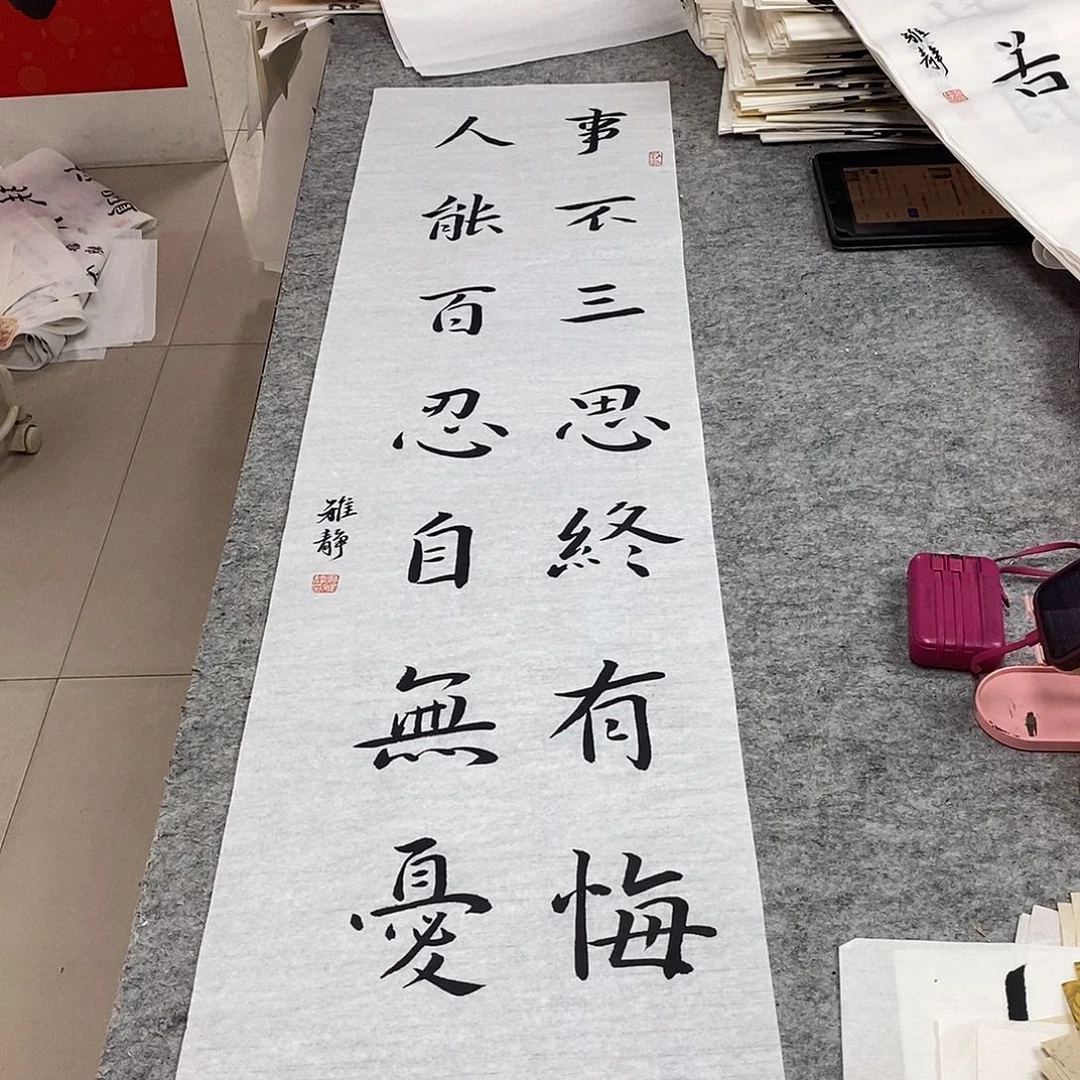 事不三思終有悔
人能百忍自無憂
雅静
雅静
苦